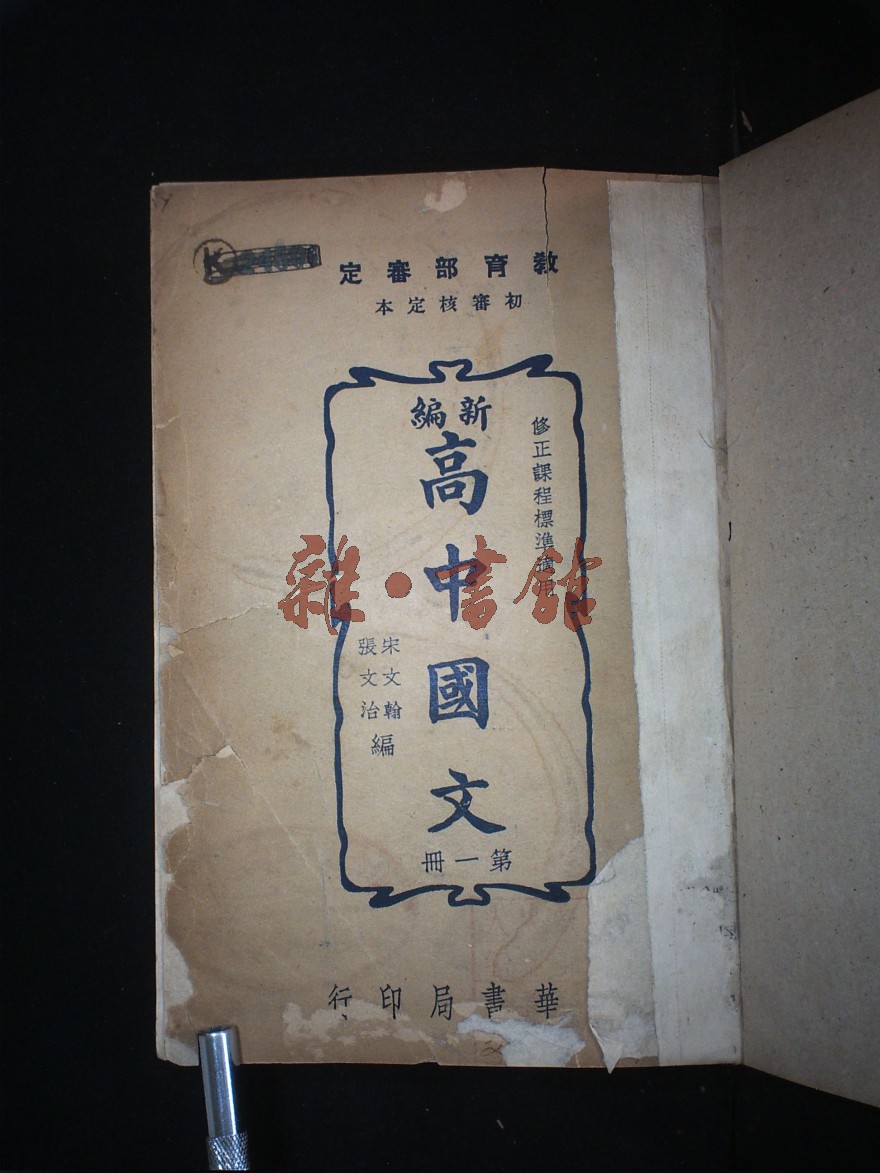 教育部審定
初審核定本
新編
高中國文
修正課程標準適用
宋文翰
張文治
編
第一冊
華書局印行
雜·書館